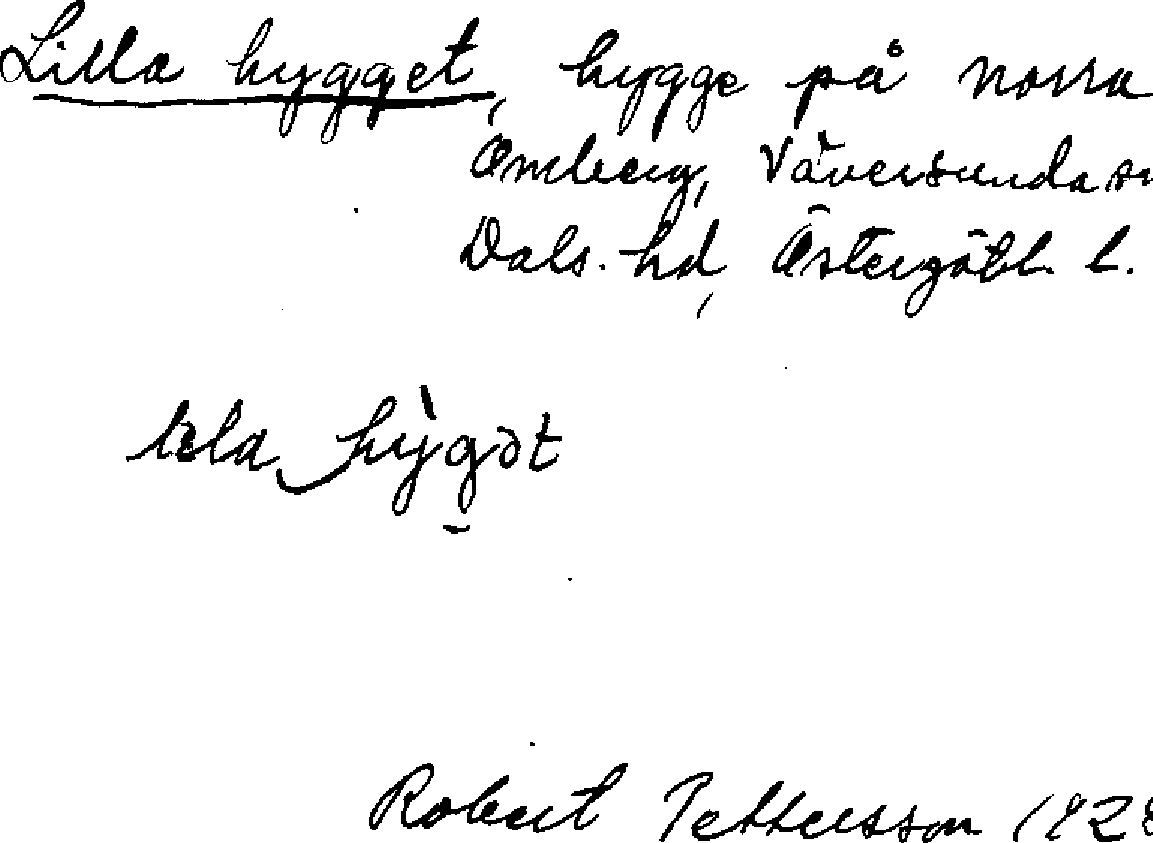 Lilla hygget, hygge på norra
Omberg, Väversunda sn
Dals hd, Östergötl. l.
hygət
Robert Pettersson 192